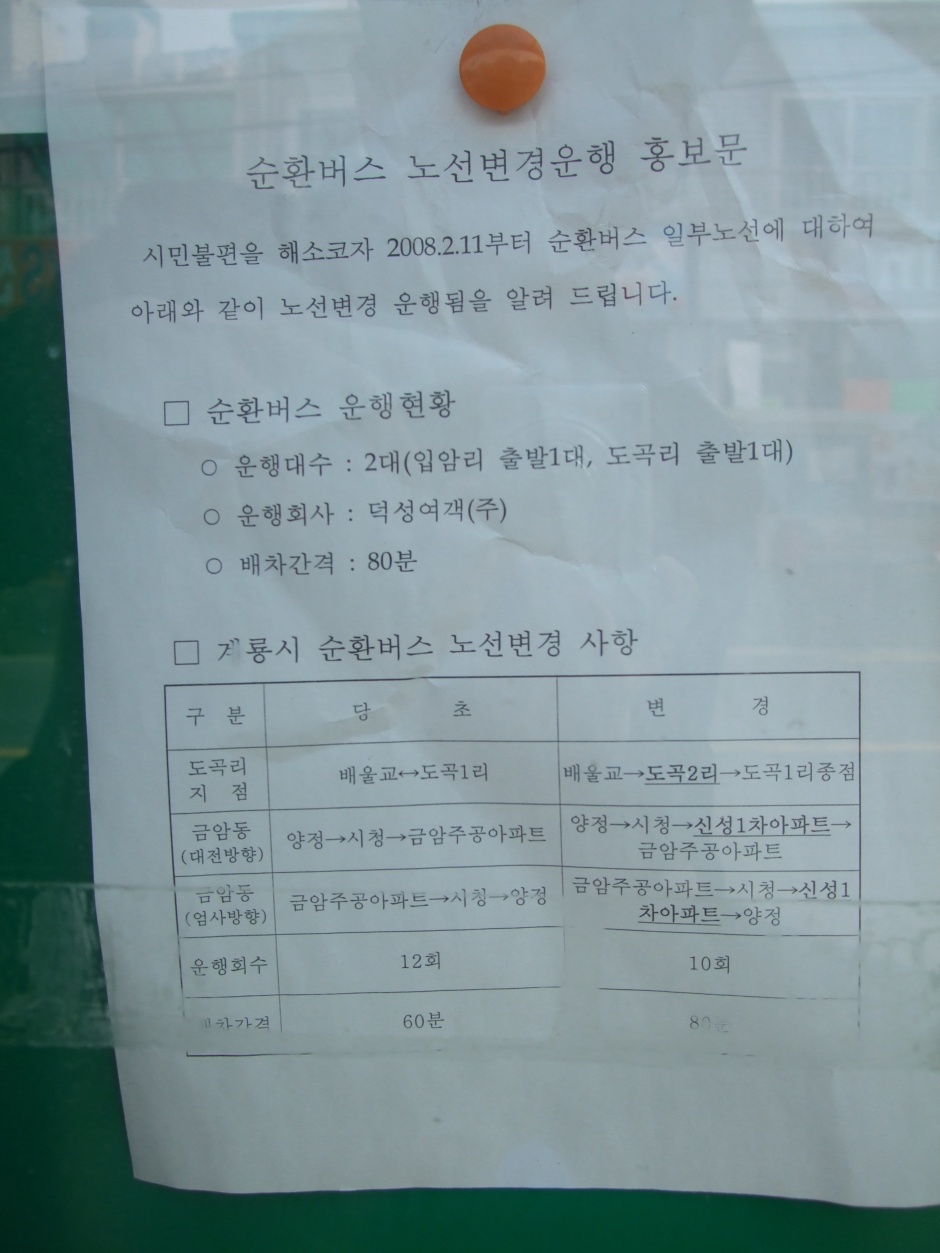 순환버스 노선변경운행 홍보문
시민불편을 해소코자 2008.2.11부터 순환버스 일부노선에 대하여
아래와 같이 노선변경 운행됨을 알려 드립니다.
□ 순환버스 운행현황
○ 운행대수 : 2대(입암리 출발1대, 도곡리 출발1대)
○ 운행회사 : 덕성여객(주)
○ 배차간격 : 80분
□ 계룡시 순환버스 노선변경 사항
구 분 당 초 변 경
도곡리 지 점 배울교↔도곡1리 배울교→도곡2리→도곡1리종점
금암동 (대전방향) 양정→시청→금암주공아파트 양정→시청→신성1차아파트→
금암주공아파트
금암동 (엄사방향) 금암주공아파트→시청→양정 금암주공아파트→시청→신성1
차아파트→양정
운행회수 12회 10회
배차간격 60분 80분